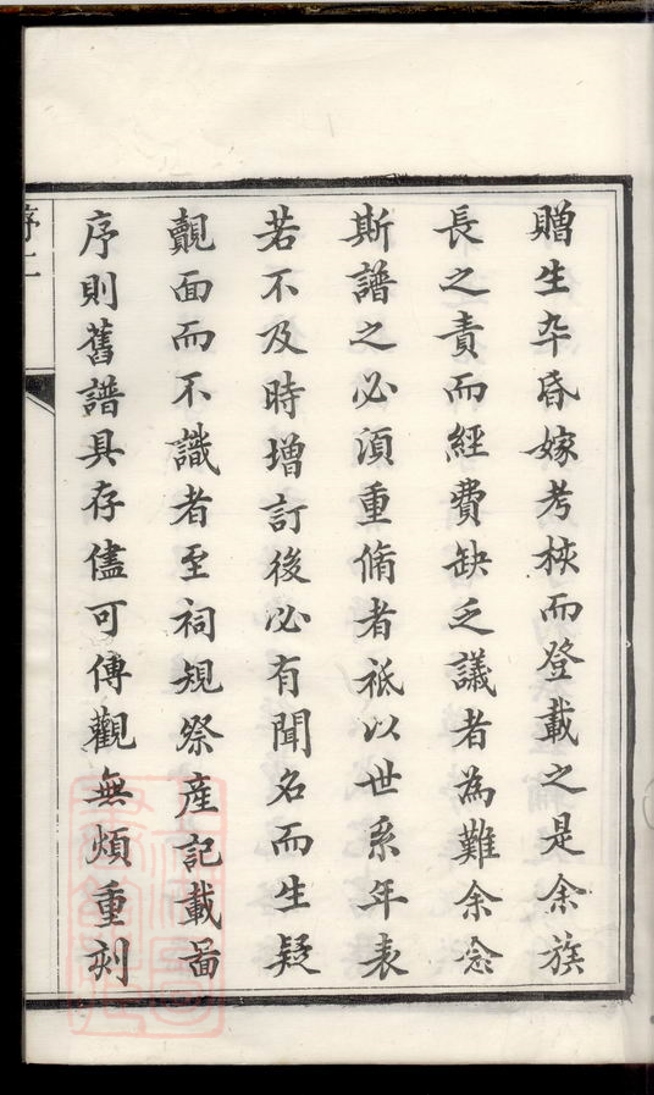 贈生卒昏嫁考核而登載之是余族
長之責而經費缺乏議者為難余念
斯譜之必須重脩者祗以世系年表
若不及時增訂後必有聞名而生疑
覿面而不識者至祠規祭產記載啚
序則舊譜具存儘可傳觀無煩重刻
序二